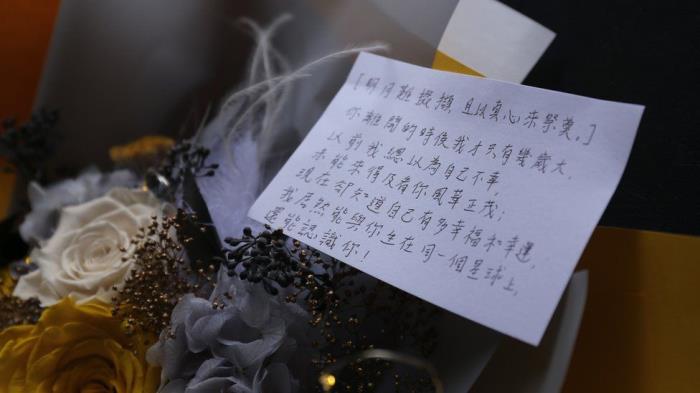 [明月難掇擷,且以真心來祭奠。]
你離開的時候我才只有幾歲大,
以前我總以為自己不幸,
未能來得及看你風華正茂;
現在卻知道自己有多幸福和幸運,
我居然能與你生在同一個星球上,
還能認識你!